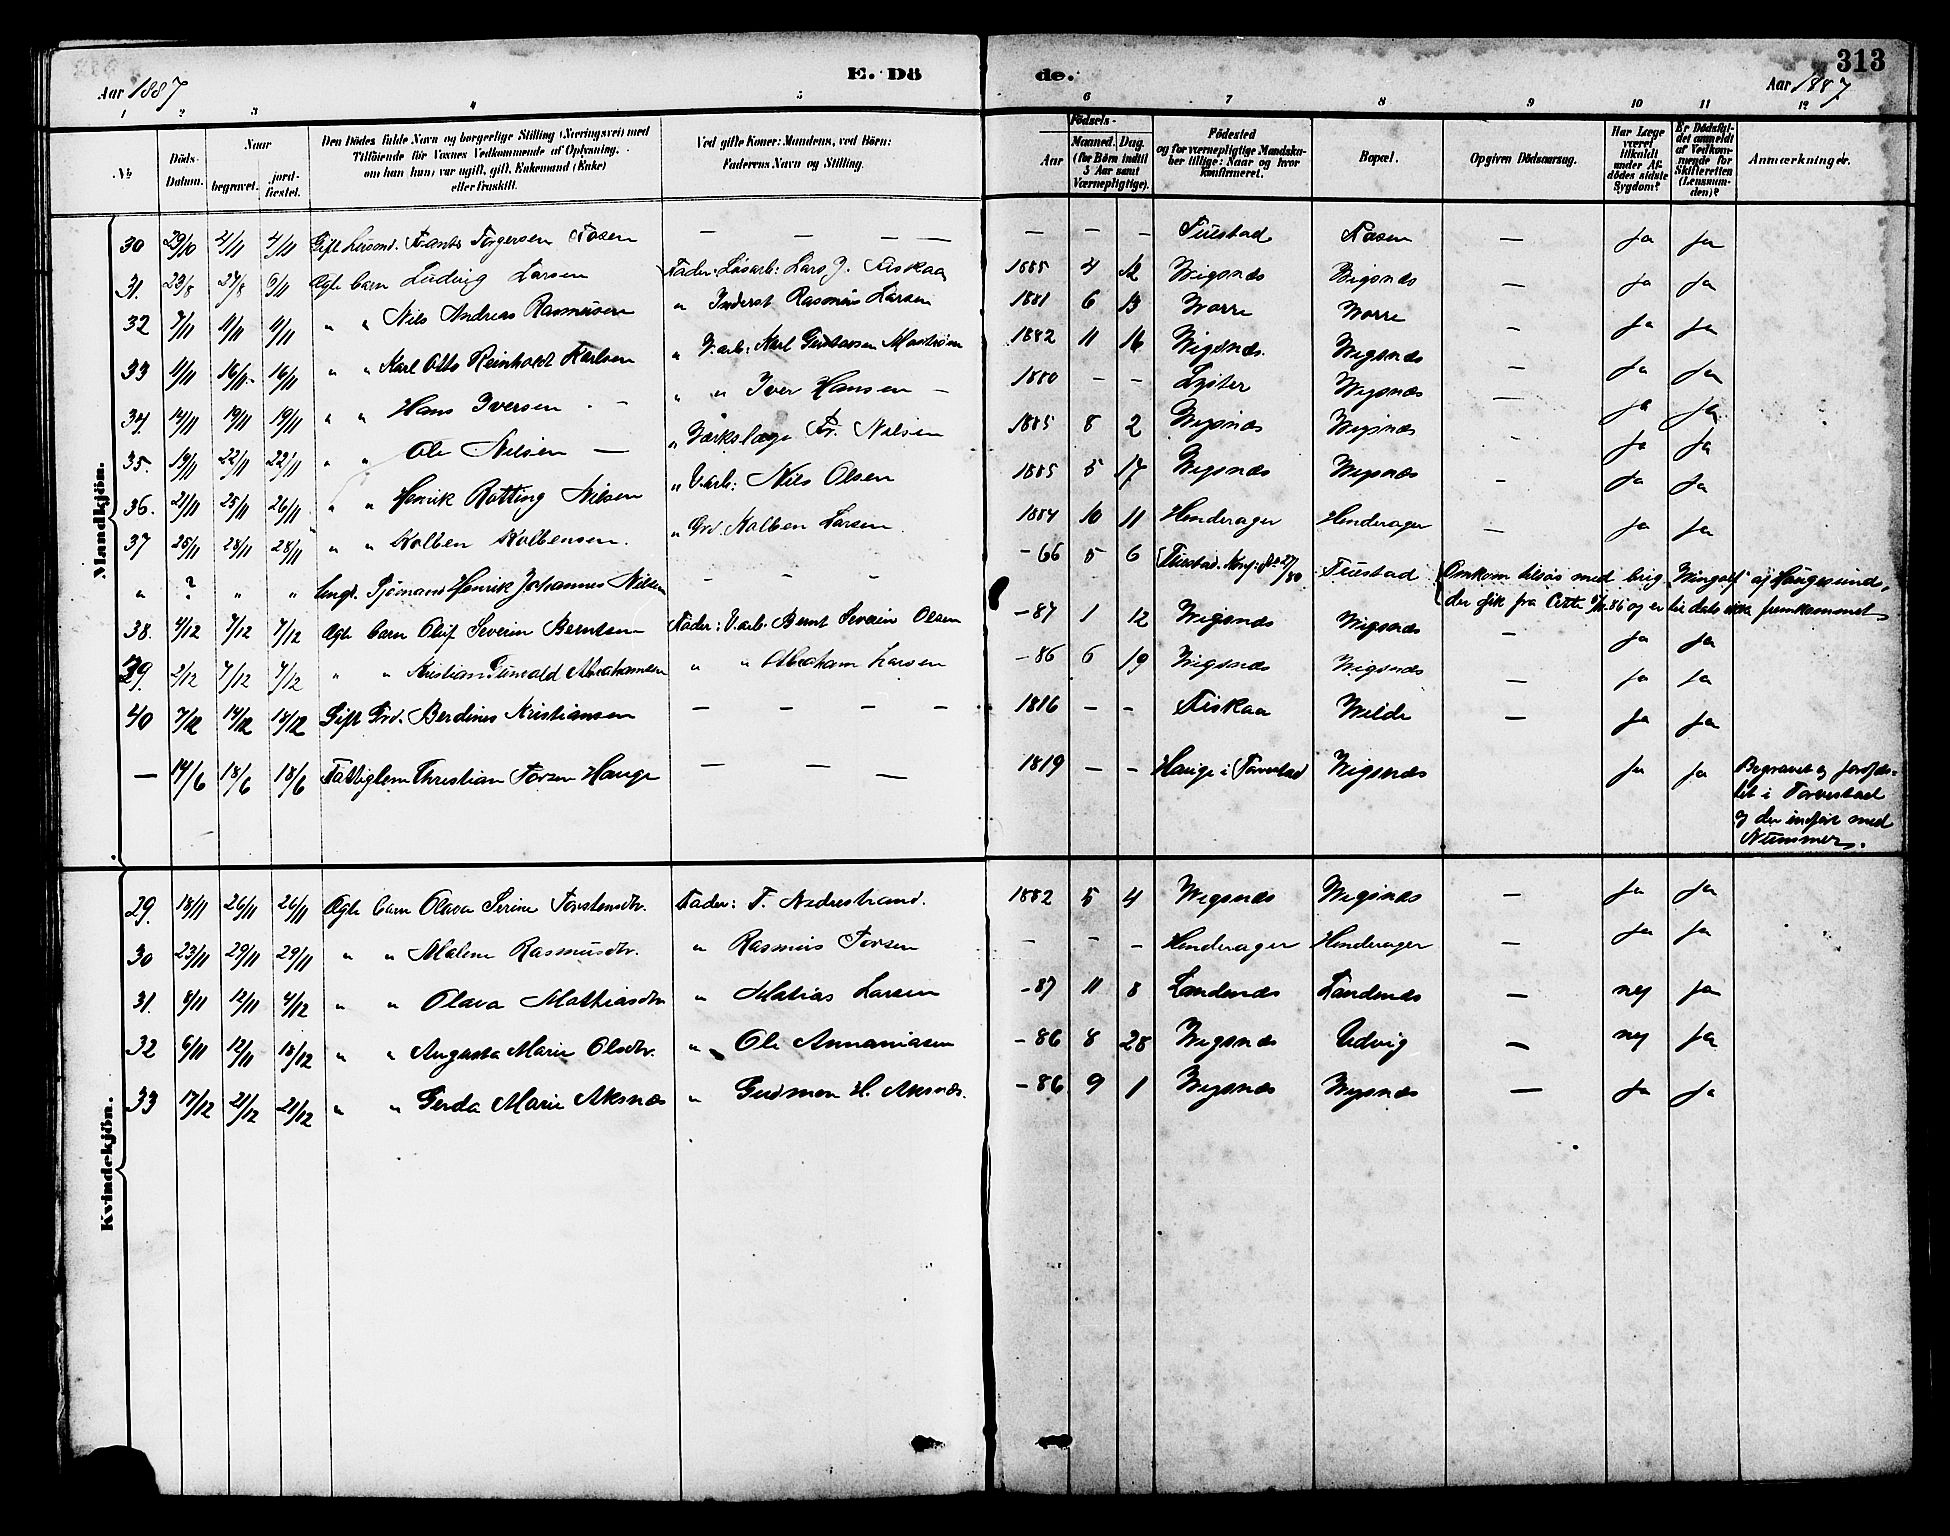 313
Aar 1887 E. Dö de. Aar 1887
1 2 3 4 5 6 7 8 9 10 11 12
№ Döds-Datum. Naar begravet. jord-fæstet. Den Dödes fulde Navn og borgerlige Stilling (Næringsvei) med Tilföiende for Voxnes Vedkommende af Oplysning, om han (hun) var ugift, gift, Enkemand (Enke) eller fraskilt. Ved gifte Koner: Mandens, ved Börn: Faderens Navn og Stilling. Födsels- Aar Maaned. Dag. (for Börn indtil 5 Aar samt Værnepligtige). Födested og for værnepligtige Mandskaber tillige: Naar og hvor konfirmeret. Bopæl. Opgiven Dödsaarsag. Har Læge været tilkaldt under Afdödes sidste Sygdom? Er Dödsfaldet anmeldt af Vedkommende for Skifteretten (Lensmanden)? Anmærkninger.
Mandkjön.
30 29/10 4/11 4/11 Gift Torgersen — — — — — — — Fæsen — Ja Ja
31. 23/8 27/8 6/11 Ægte barn Ludvig Larsen Fader: Løsarb: Lars J. Fiskaa 1885 4 12 Wigsnæs Wigsnæs — Ja Ja
32 7/11 11/11 11/11 " " Nils Andreas Rasmusen " Inderst Rasmus Larsen 1881 6 13 Worre Worre — Ja Ja
33 11/11 16/11 16/11 " " Karl Otto Reinholdt Karlsen " V.arb: Karl Gustavsen 1882 11 16 Wigsnæs Wigsnæs — Ja Ja
34. 14/11 19/11 19/11 " " Hans Iversen — " " Iver Hansen — 1880 — — Lyster Wigsnæs — Ja Ja
35. 19/11 22/11 22/11 " " Ole Nilsen — " Værkslæge Fr. Nilsen 1885 8 2 Wigsnæs Wigsnæs — Ja Ja
36. 21/11 25/11 26/11 " " Henrik Rotting Nilsen " V.arb: Nils Olsen 1885 5 17 Wigsnæs Wigsnæs — Ja Ja
37 25/11 28/11 28/11 " " Kolben Kolbensen. " Grd. Kolben Larsen. 1884 10 11 Hinderager Hinderager — Ja Ja
" ? " " Ungk. Sjømand Henrik Johannes Nilsen — — — -66 5 6 Omkom tilsøs med brig af Haugesund,
der gik fra 86 og er til dato ikke fremkommet.
38. 4/12 7/12 7/12 Ægte barn Oluf Severin Berntsen Fader: V.arb. Bernt Severin Olsen -87 1 12 Wigsnæs Wigsnæs — Ja Ja
39. 2/12 7/12 7/12 " " Kristian Abrahamsen " " Abraham Larsen -86 6 19 Wigsnæs Wigsnæs — Ja Ja
40 7/12 14/12 18/12 Gift Grd. Berdines Kristiansen — — — — 1816 — — Fiskaa Welde — Ja Ja
— 14/6 18/6 18/6 Fattiglem Christian Torsen Hauge — — — 1819 — — Hauge i Torvestad Wigsnæs Ja Ja Begravet og jordfæs-
tet i Torvestad
og der indført med
Nummer.
Kvindekjön.
29. 18/11 26/11 26/11 Ægte barn Olava Serine Torstensdtr. Fader: T. Nedrestrand. 1882 5 4 Wigsnæs Wigsnæs — Ja Ja
30 23/11 29/11 29/11 " " Malene Rasmusdtr. " Rasmus Torsen — — — Hinderager Hinderager — Ja Ja
31. 8/11 12/11 4/12 " " Olava Mathiasdtr " Matias Larsen -87 11 8 Landenæs Landenæs — nej Ja
32 6/11 12/11 18/12 " " Augusta Marie Olsdtr. " Ole Annaniasen -86 8 28 Wigsnæs Udvig — nej Ja
33 17/12 21/12 21/12 " " Gerda Marie Aksnæs " Gudmon H. Aksnæs. -86 9 1 Wigsnæs Wigsnæs — Ja Ja